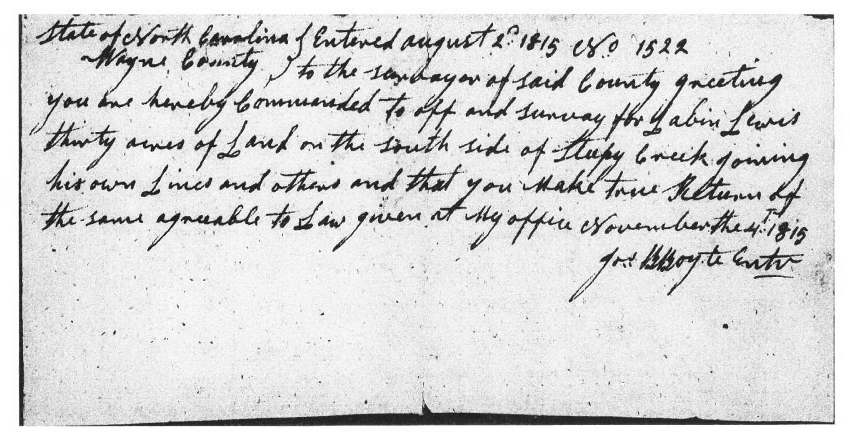 State of North Carolina } Entered august 2d 1815 No 1522
Wayne County } to the survayor of said County greeting
you are hereby Commanded to off and survay for Labin Lewis
thirty acres of Land on the south side of Sleepy Creek joining
his own Lines and others and that you Make true Return of
the same agreable to Law given at My office November the 4th 1815
Jos BBoyte Entr